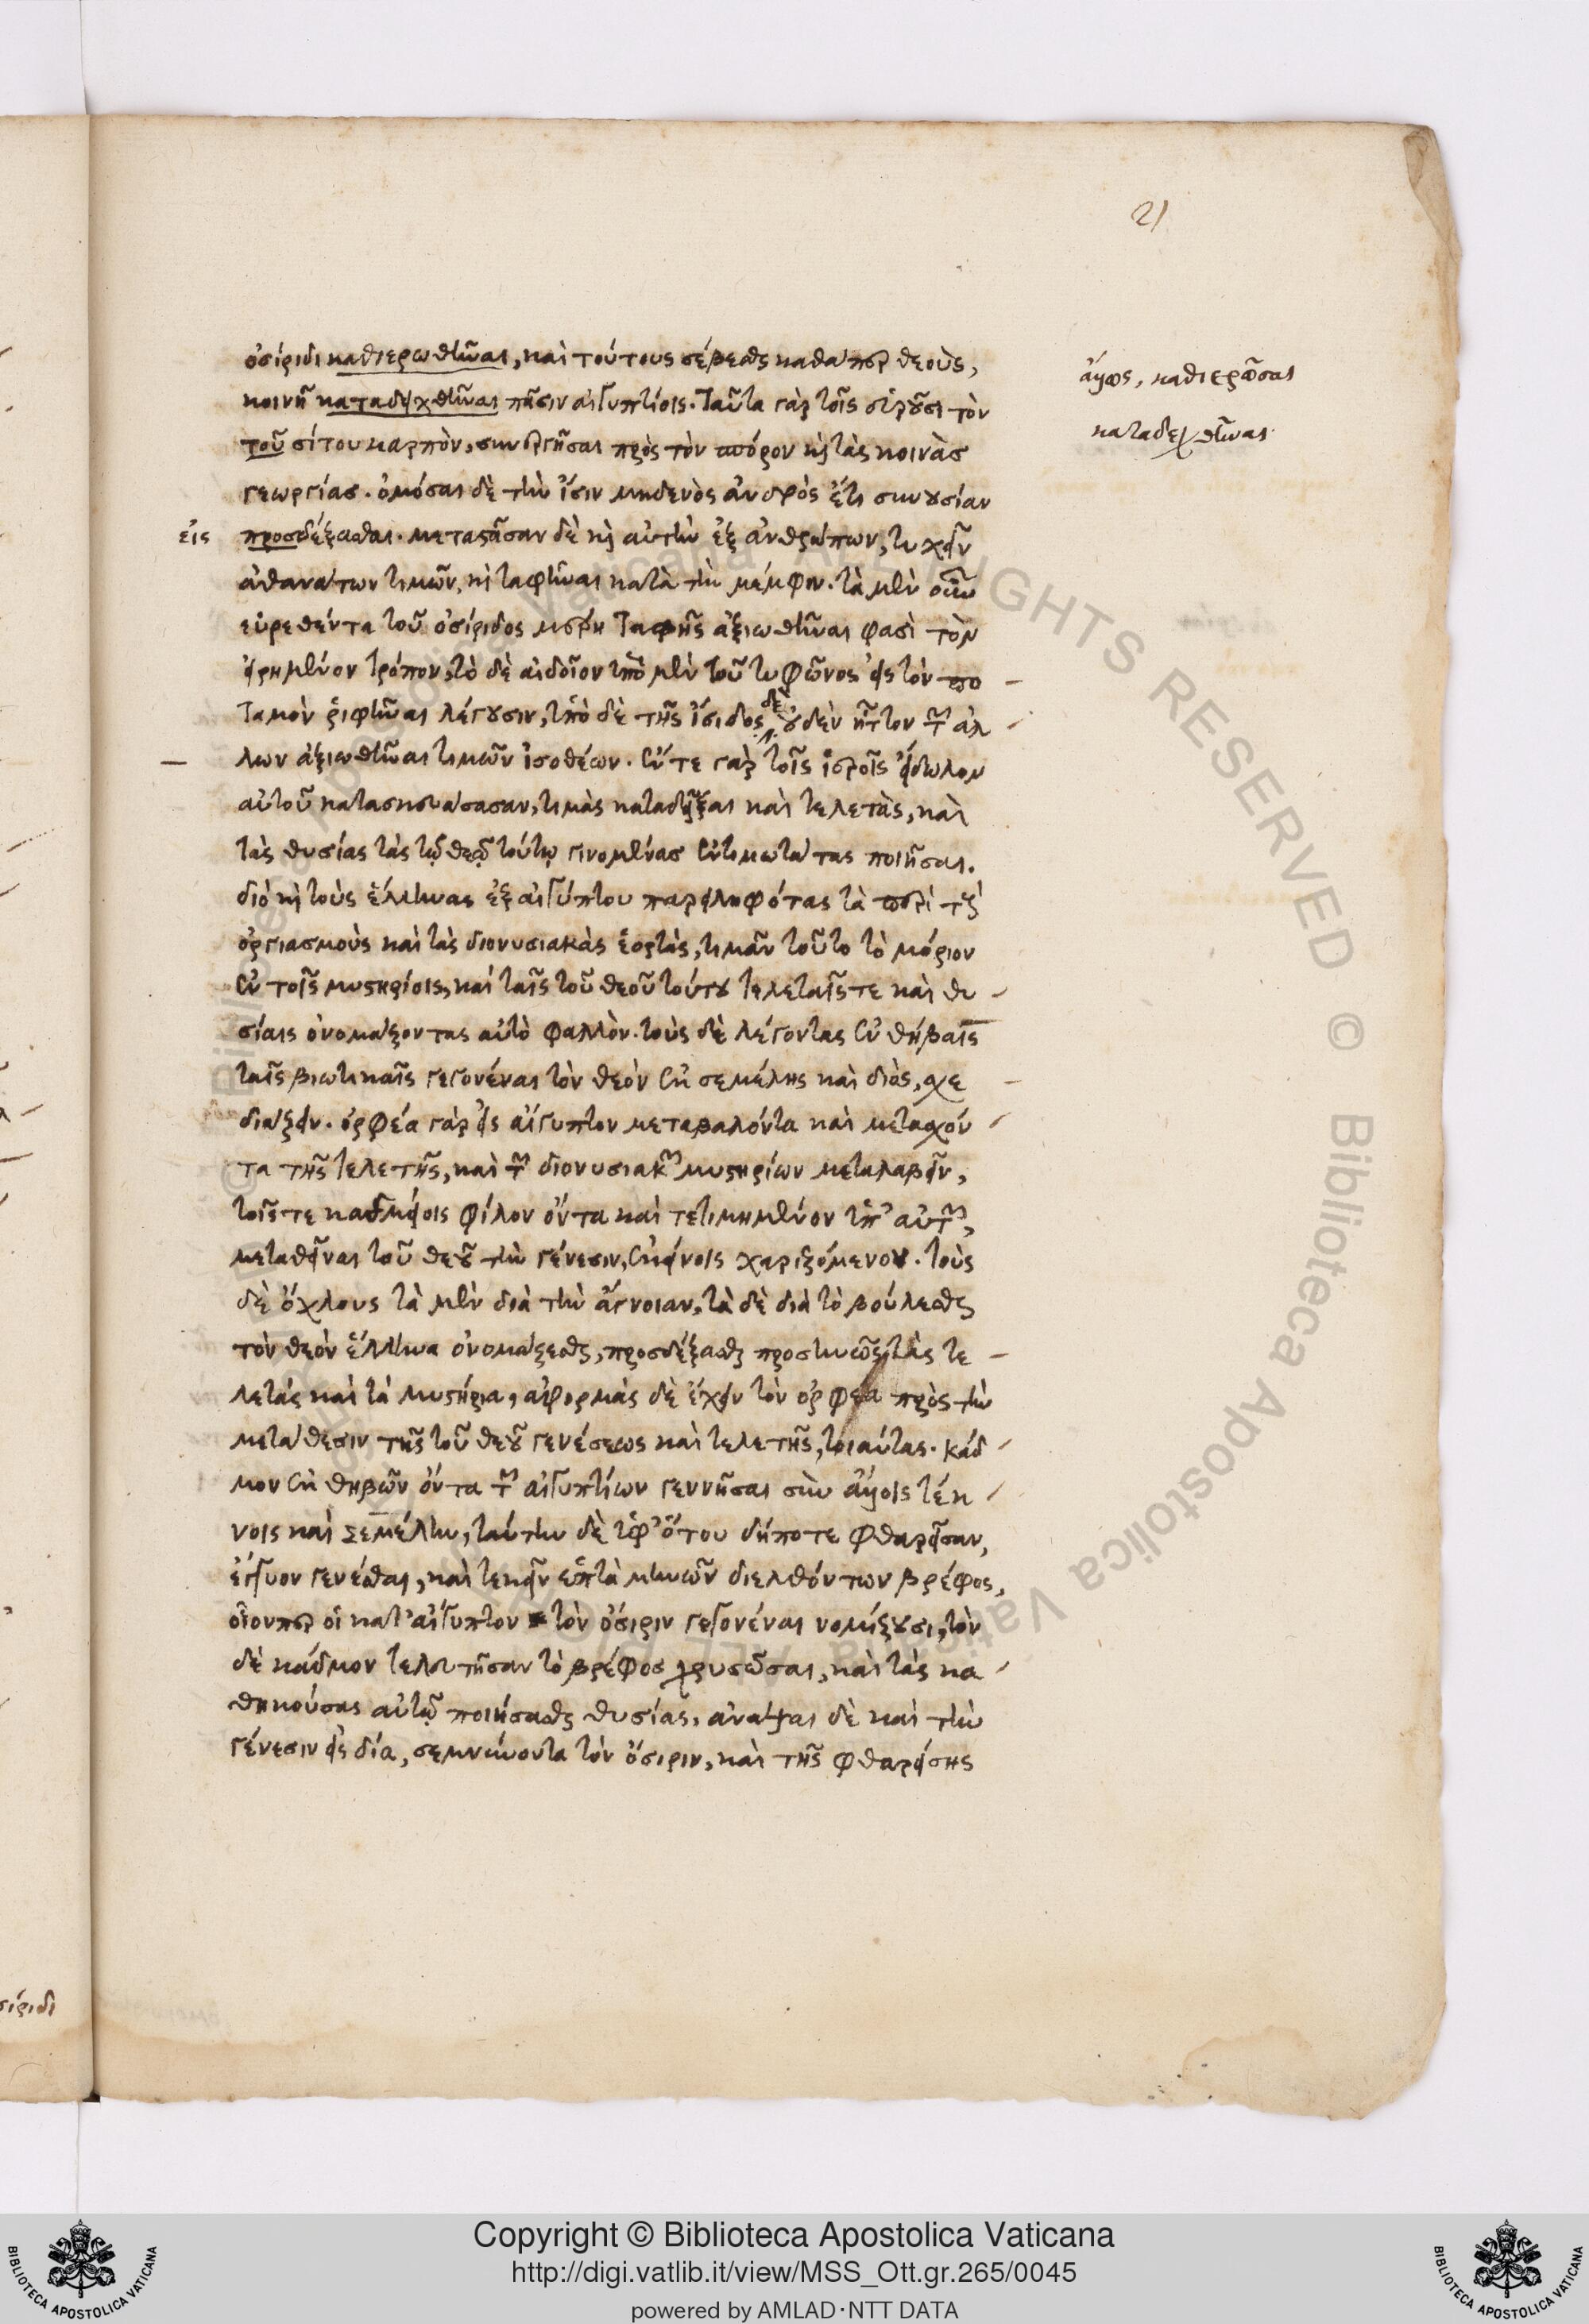 21
ὀσίριδι καθιερωθῆναι, καὶ τούτους σέβεσθαι καθάπερ θεοὺς,
κοινῇ καταδειχθῆναι πᾶσιν αἰγυπτίοις. ταῦτα γὰρ τοῖς εὑροῦσι τὸν
τοῦ σίτου καρπὸν, συνεργῆσαι πρὸς τὸν σπόρον καὶ τὰς κοινὰσ
γεωργίασ. ὀμόσαι δὲ τὴν ἴσιν μηδενὸς ἀνδρὸς ἔτι συνουσίαν
προσδέξασθαι. μεταστᾶσαν δὲ καὶ αὐτὴν ἐξ ἀνθρώπων, τυχεῖν
ἀθανάτων τιμῶν, καὶ ταφῆναι κατὰ τὴν μέμφιν. τὰ μὲν οὖν
εὑρεθέντα τοῦ ὀσίριδος μέρη ταφῆς ἀξιωθῆναι φασὶ τὸν
εἰρημένον τρόπον, τὸ δὲ αἰδοῖον ὑπὸ μὲν τοῦ τυφῶνος εἰς τὸν πο
ταμὸν ῥιφῆναι λέγουσιν, ὑπὸ δὲ τῆς ἴσιδος δὲ οὐδὲν ἧττον τῶν ἀλ
λων ἀξιωθῆναι τιμῶν ἰσοθέων. ἔν τε γὰρ τοῖς ἱεροῖς εἴδωλον
αὐτοῦ κατασκευάσασαν, τιμὰς καταδεῖξαι καὶ τελετὰς, καὶ
τὰς θυσίας τὰς τῷ θεῷ τούτῳ γινομένασ ἐντιμωτάτας ποιῆσαι.
διὸ καὶ τοὺς ἕλληνας ἐξ αἰγύπτου παρειληφότας τὰ περὶ τοὺς
ὀργιασμοὺς καὶ τὰς διονυσιακὰς ἑορτὰς, τιμᾶν τοῦτο τὸ μόριον
ἐν τοῖς μυστηρίοις, καὶ ταῖς τοῦ θεοῦ τούτου τελεταῖς τε καὶ θυ
σίαις ὀνομάζοντας αὐτὸ φαλλὸν. τοὺς δὲ λέγοντας ἐν θήβαις
ταῖς βιωτικαῖς γεγονέναι τὸν θεὸν ἐκ σεμέλης καὶ διὸς, σχε
διάζειν. ὀρφέα γὰρ εἰς αἴγυπτον μεταβαλόντα καὶ μετασχόν
τα τῆς τελετῆς, καὶ τῶν διονυσιακῶν μυστηρίων μεταλαβεῖν,
τοῖς τε καδμείοις φίλον ὄντα καὶ τετιμημένον ὑπ' αὐτῶν,
μεταθεῖναι τοῦ θεοῦ τὴν γένεσιν, ἐκείνοις χαριζόμενον. τοὺς
δὲ ὄχλους τὰ μὲν διὰ τὴν ἄγνοιαν, τὰ δὲ διὰ τὸ βούλεσθαι
τὸν θεὸν ἕλληνα ὀνομάζεσθαι, προσδέξασθαι προσηνῶς τὰς τε
λετὰς καὶ τὰ μυστήρια, ἀφορμὰς δὲ ἔχειν τὸν ὀρφέα πρὸς τὴν
μετάθεσιν τῆς τοῦ θεοῦ γενέσεως καὶ τελετῆς, τοιαύτας. κάδ
μον ἐκ θηβῶν ὄντα τῶν αἰγυπτίων γεννῆσαι σὺν ἄλλοις τέκ
νοις καὶ σεμέλην, ταύτην δὲ ὑφ' ὅτου δήποτε φθαρεῖσαν,
ἔγκυον γενέσθαι, καὶ τεκεῖν ἑπτὰ μηνῶν διελθόντων βρέφος,
οἷονπερ οἱ κατ' αἴγυπτον τὸν ὄσιριν γεγονέναι νομίζουσι, τὸν
δὲ κάδμον τελευτῆσαν τὸ βρέφοσ χρυσῶσαι, καὶ τὰς κα
θηκούσας αὐτῷ ποιήσασθαι θυσίας, ἀνάψαι δὲ καὶ τὴν
γένεσιν εἰς δία, σεμνύνοντα τὸν ὄσιριν, καὶ τῆς φθαρείσης
εἰς
ἄλλως, καθιερῶσαι
καταδειχθῆναι
σίριδι
Copyright © Biblioteca Apostolica Vaticana
http://digi.vatlib.it/view/MSS_Ott.gr.265/0045
powered by AMLAD·NTT DATA
BIBLIOTECA APOSTOLICA VATICANA
BIBLIOTECA APOSTOLICA VATICANA
© Biblioteca Apostolica Vaticana ALL RIGHTS RESERVED © Biblioteca Apostolica Vaticana ALL RIGHTS RESERVED